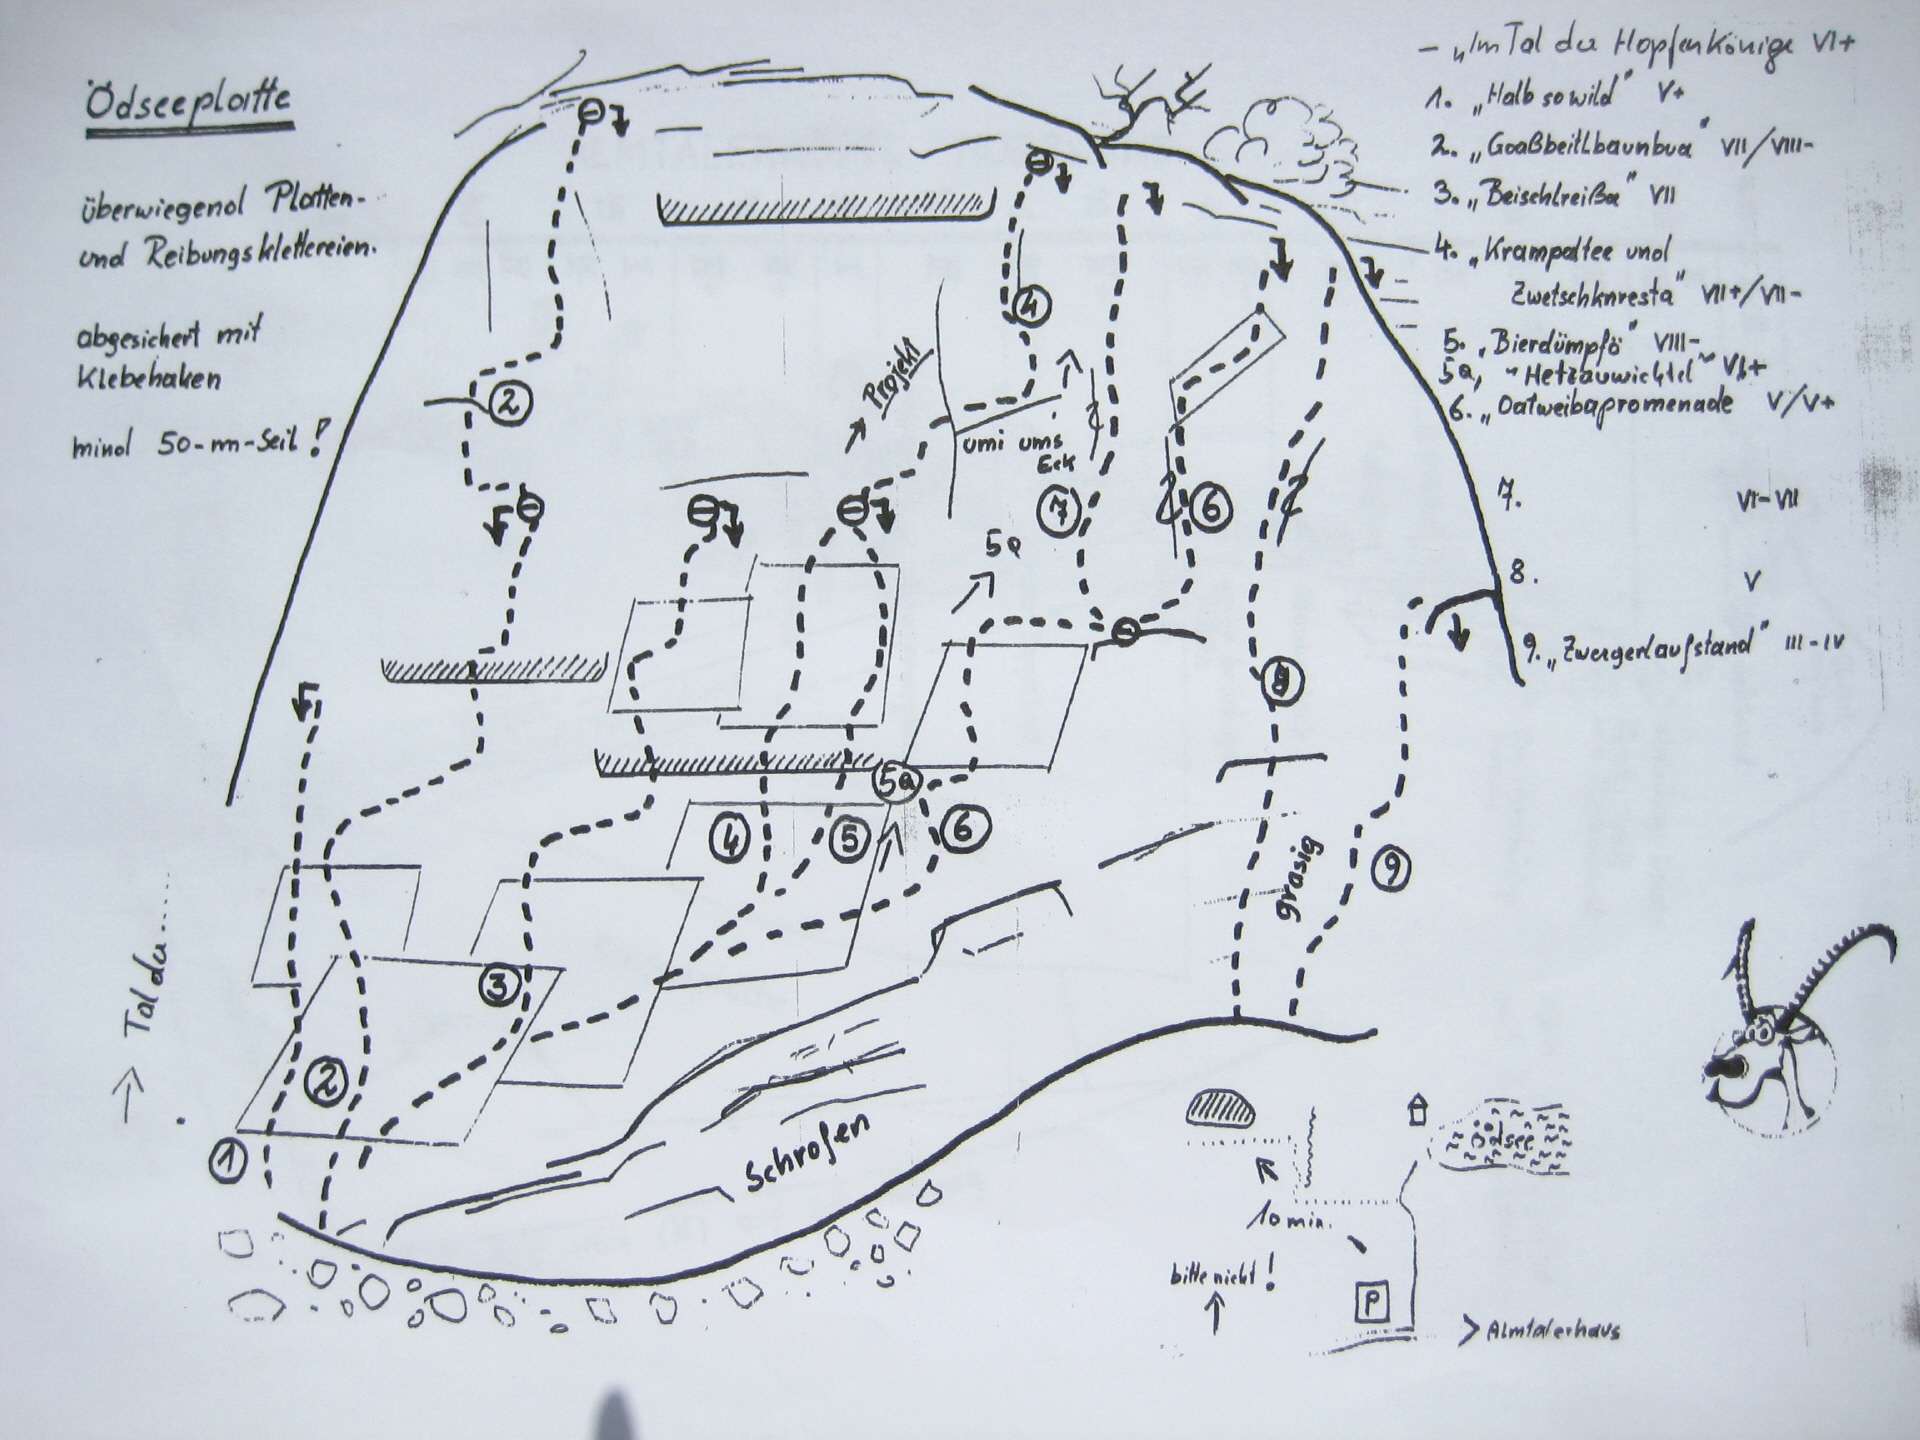 Ödseeplatte
überwiegend Platten-
und Reibungsklettereien.
abgesichert mit
Klebehaken
mind 50-m-Seil!
- „Im Tal der Hopfenkönige VI+
1. „Halb so wild" V+
2. „Goaßbeitlbaunbua" VII/VIII-
3. „Beischlreißa" VII
4. „Krampaltee und
Zwetschknresta" VII+/VII-
5. „Bierdümpfö" VIII-
5a, "Hetzauwichtel" VI+
6. „Oatweibapromenade V/V+
7. VI-VII
8. V
9. „Zwergerlaufstand" III-IV
4
Projekt
2
umi ums
Eck
5a
7
6
8
5a
4
5
6
grasig
9
3
2
1
→ Tal der.....
Schrofen
Ödsee
10 min.
bitte nicht!
P
> Almtalerhaus